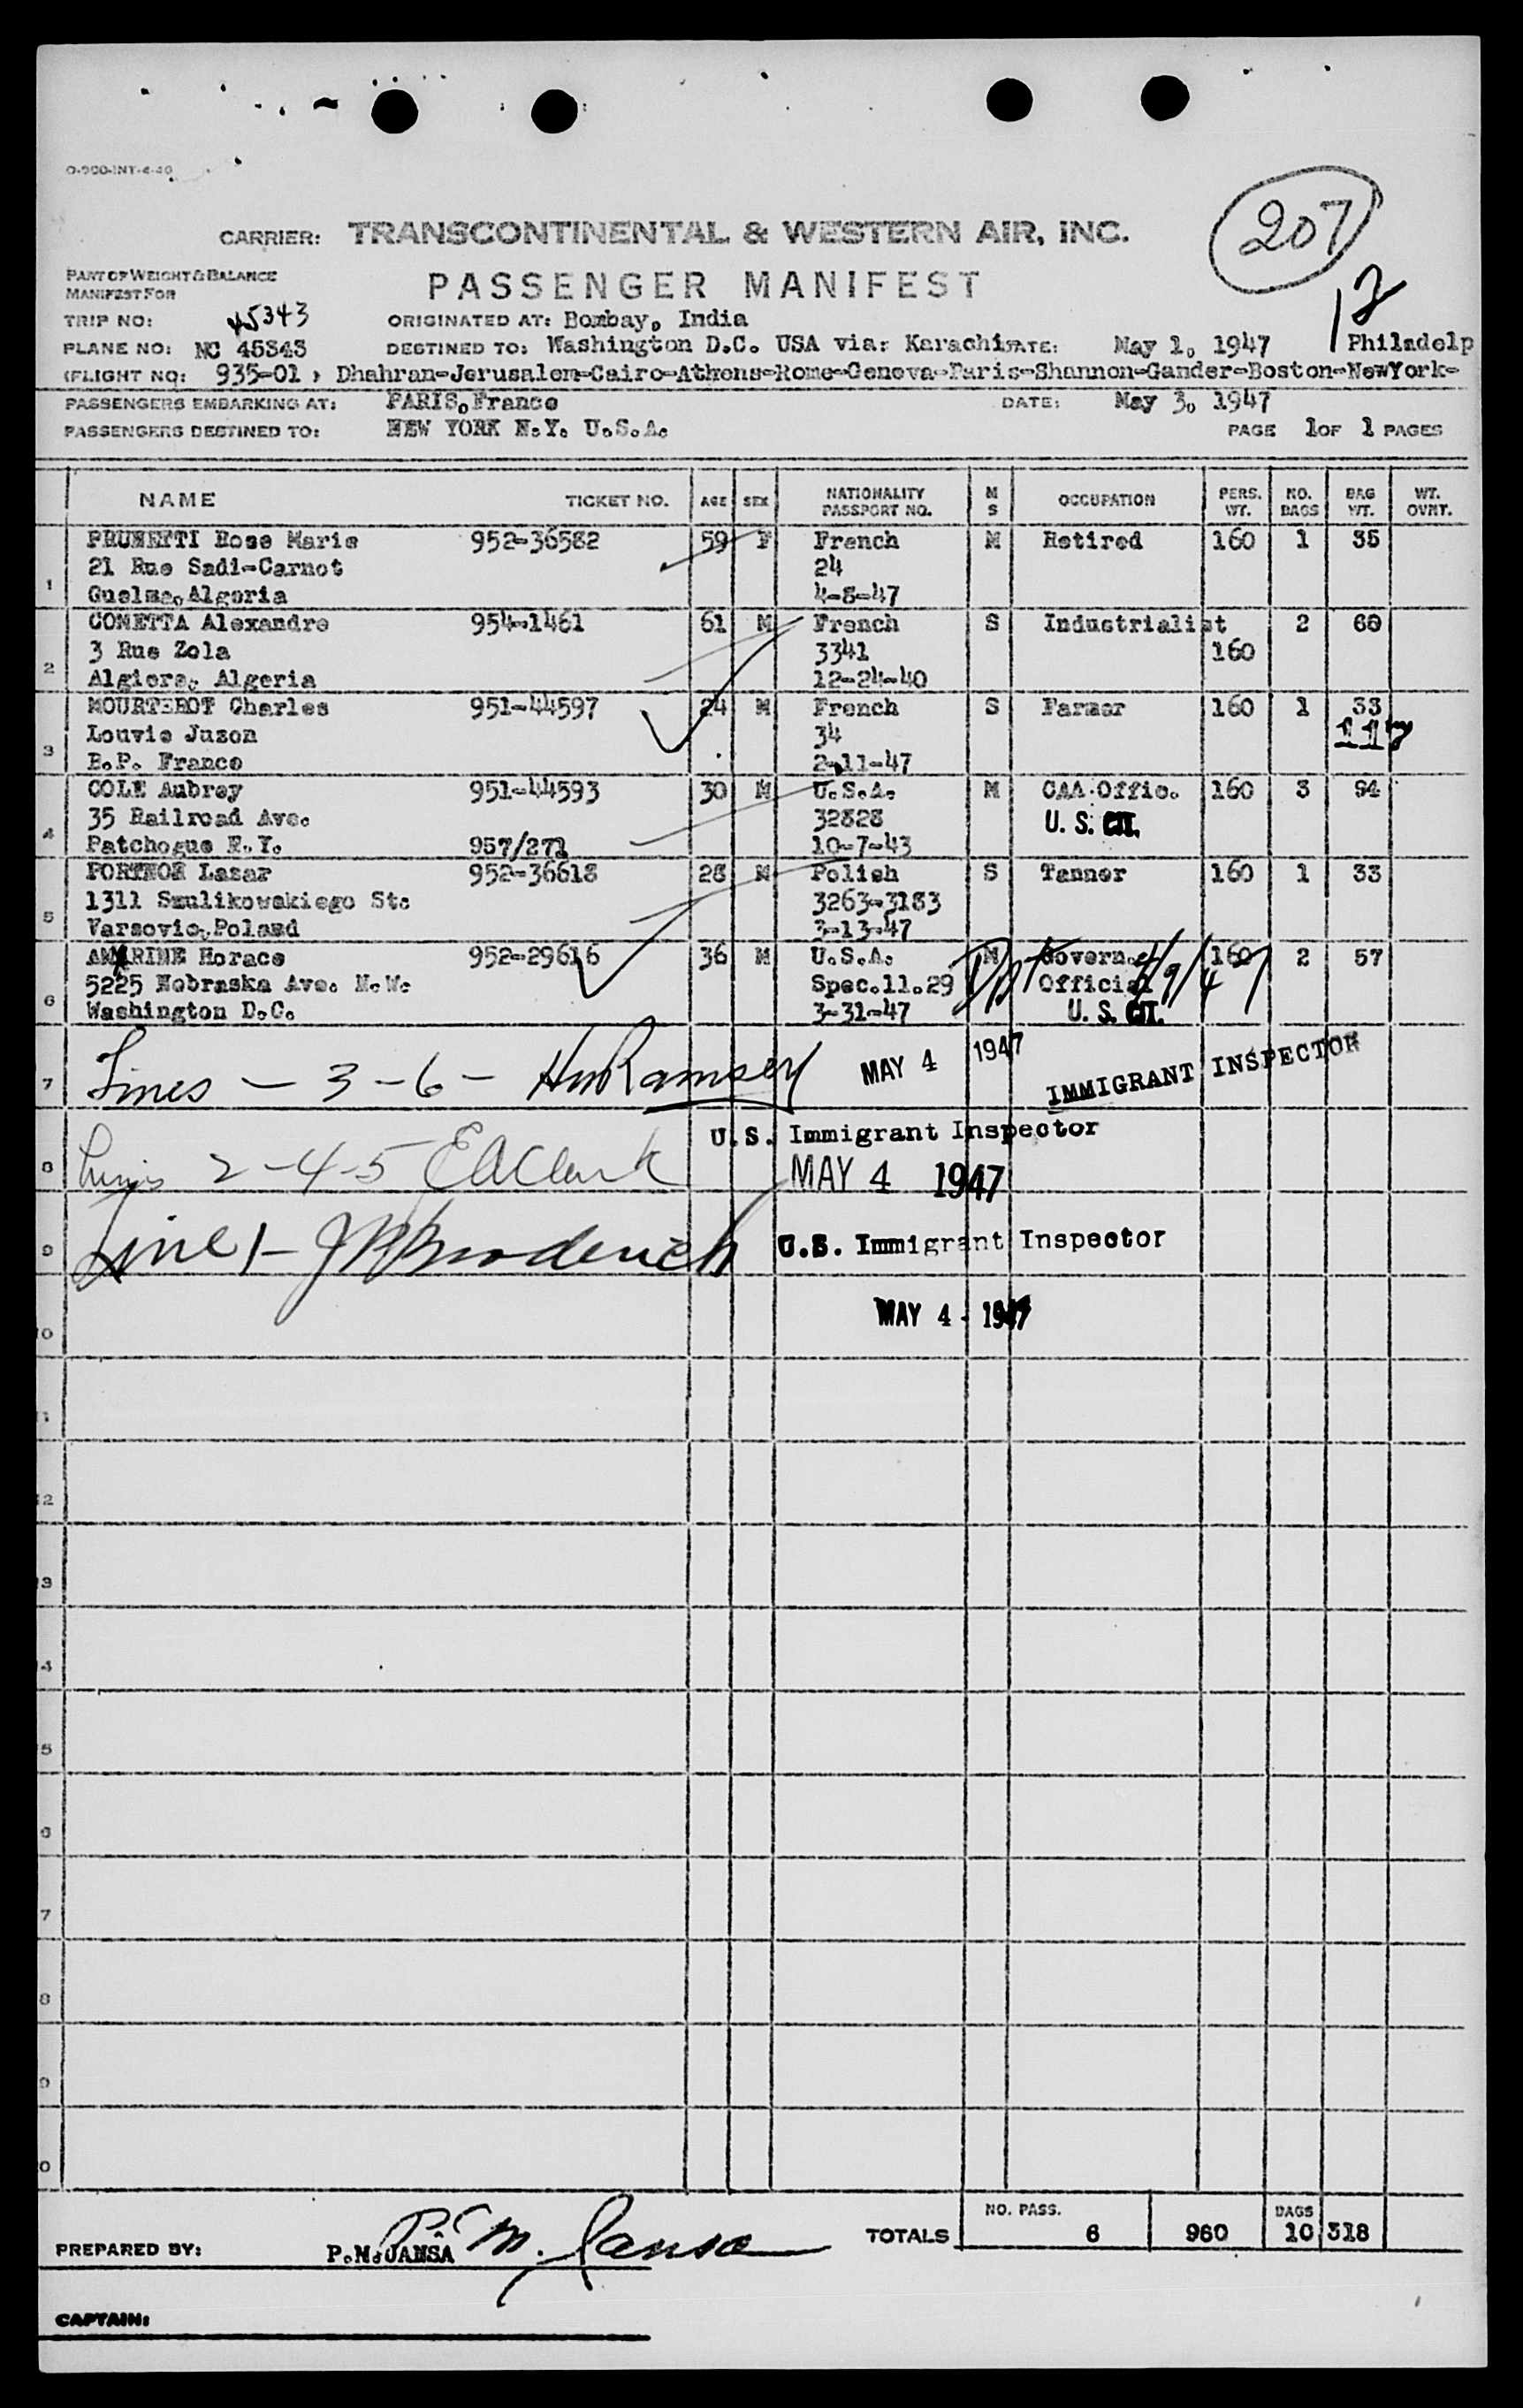 O-900-INT-4-46
207
CARRIER: TRANSCONTINENTAL & WESTERN AIR, INC.
PART OF WEIGHT & BALANCE
MANIFEST FOR
PASSENGER MANIFEST
12
TRIP NO: 45343 ORIGINATED AT: Bombay, India
PLANE NO: NC 45343 DESTINED TO: Washington D.C. USA via: Karachi DATE: May 1, 1947 Philadelp
(FLIGHT NO: 935-01) Dhahran-Jerusalem-Cairo-Athens-Rome-Geneva-Paris-Shannon-Gander-Boston-NewYork-
PASSENGERS EMBARKING AT: PARIS, France DATE: May 3, 1947
PASSENGERS DESTINED TO: NEW YORK N.Y. U.S.A. PAGE 1 OF 1 PAGES
NAME TICKET NO. AGE SEX NATIONALITY PASSPORT NO. M S OCCUPATION PERS. WT. NO. BAGS BAG WT. WT. OVRT.
PRUNETTI Rose Marie 952-36582 59 F French M Retired 160 1 35
21 Rue Sadi-Carnot 24
1 Guelma, Algeria 4-8-47
COMETTA Alexandre 954-1461 61 M French S Industrialist 2 60
3 Rue Zola 3341 160
2 Algiers, Algeria 12-24-40
MOURTEROT Charles 951-44597 24 M French S Farmer 160 1 33
Louvie Juzon 34 117
3 B.P. France 2-11-47
COLE Aubrey 951-44593 30 M U.S.A. M CAA Offic. 160 3 94
35 Railroad Ave. 32828 U. S. CIT.
4 Patchogue N.Y. 957/271 10-7-43
PORTNOR Lazar 952-36618 28 M Polish S Tanner 160 1 33
1311 Szulikowskiego Str 3263-3183
5 Varsovie, Poland 3-13-47
AMARINE Horace 952-29616 36 M U.S.A. M Governmt 160 2 57
5225 Nebraska Ave. N.W. Spec.11.29 Official
6 Washington D.C. 3-31-47 U. S. CIT.
7 Lines - 3 - 6 - HmRamsey MAY 4 1947 IMMIGRANT INSPECTOR
U.S. Immigrant Inspector
8 Lines 2-4-5 EAClark MAY 4 1947
9 Line 1 - JRBroderick U.S. Immigrant Inspector
MAY 4 - 1947
10
11
12
13
14
15
16
17
18
19
20
NO. PASS. BAGS
TOTALS 6 960 10 318
PREPARED BY: P.M.JANSA P. M. Jansa
CAPTAIN: